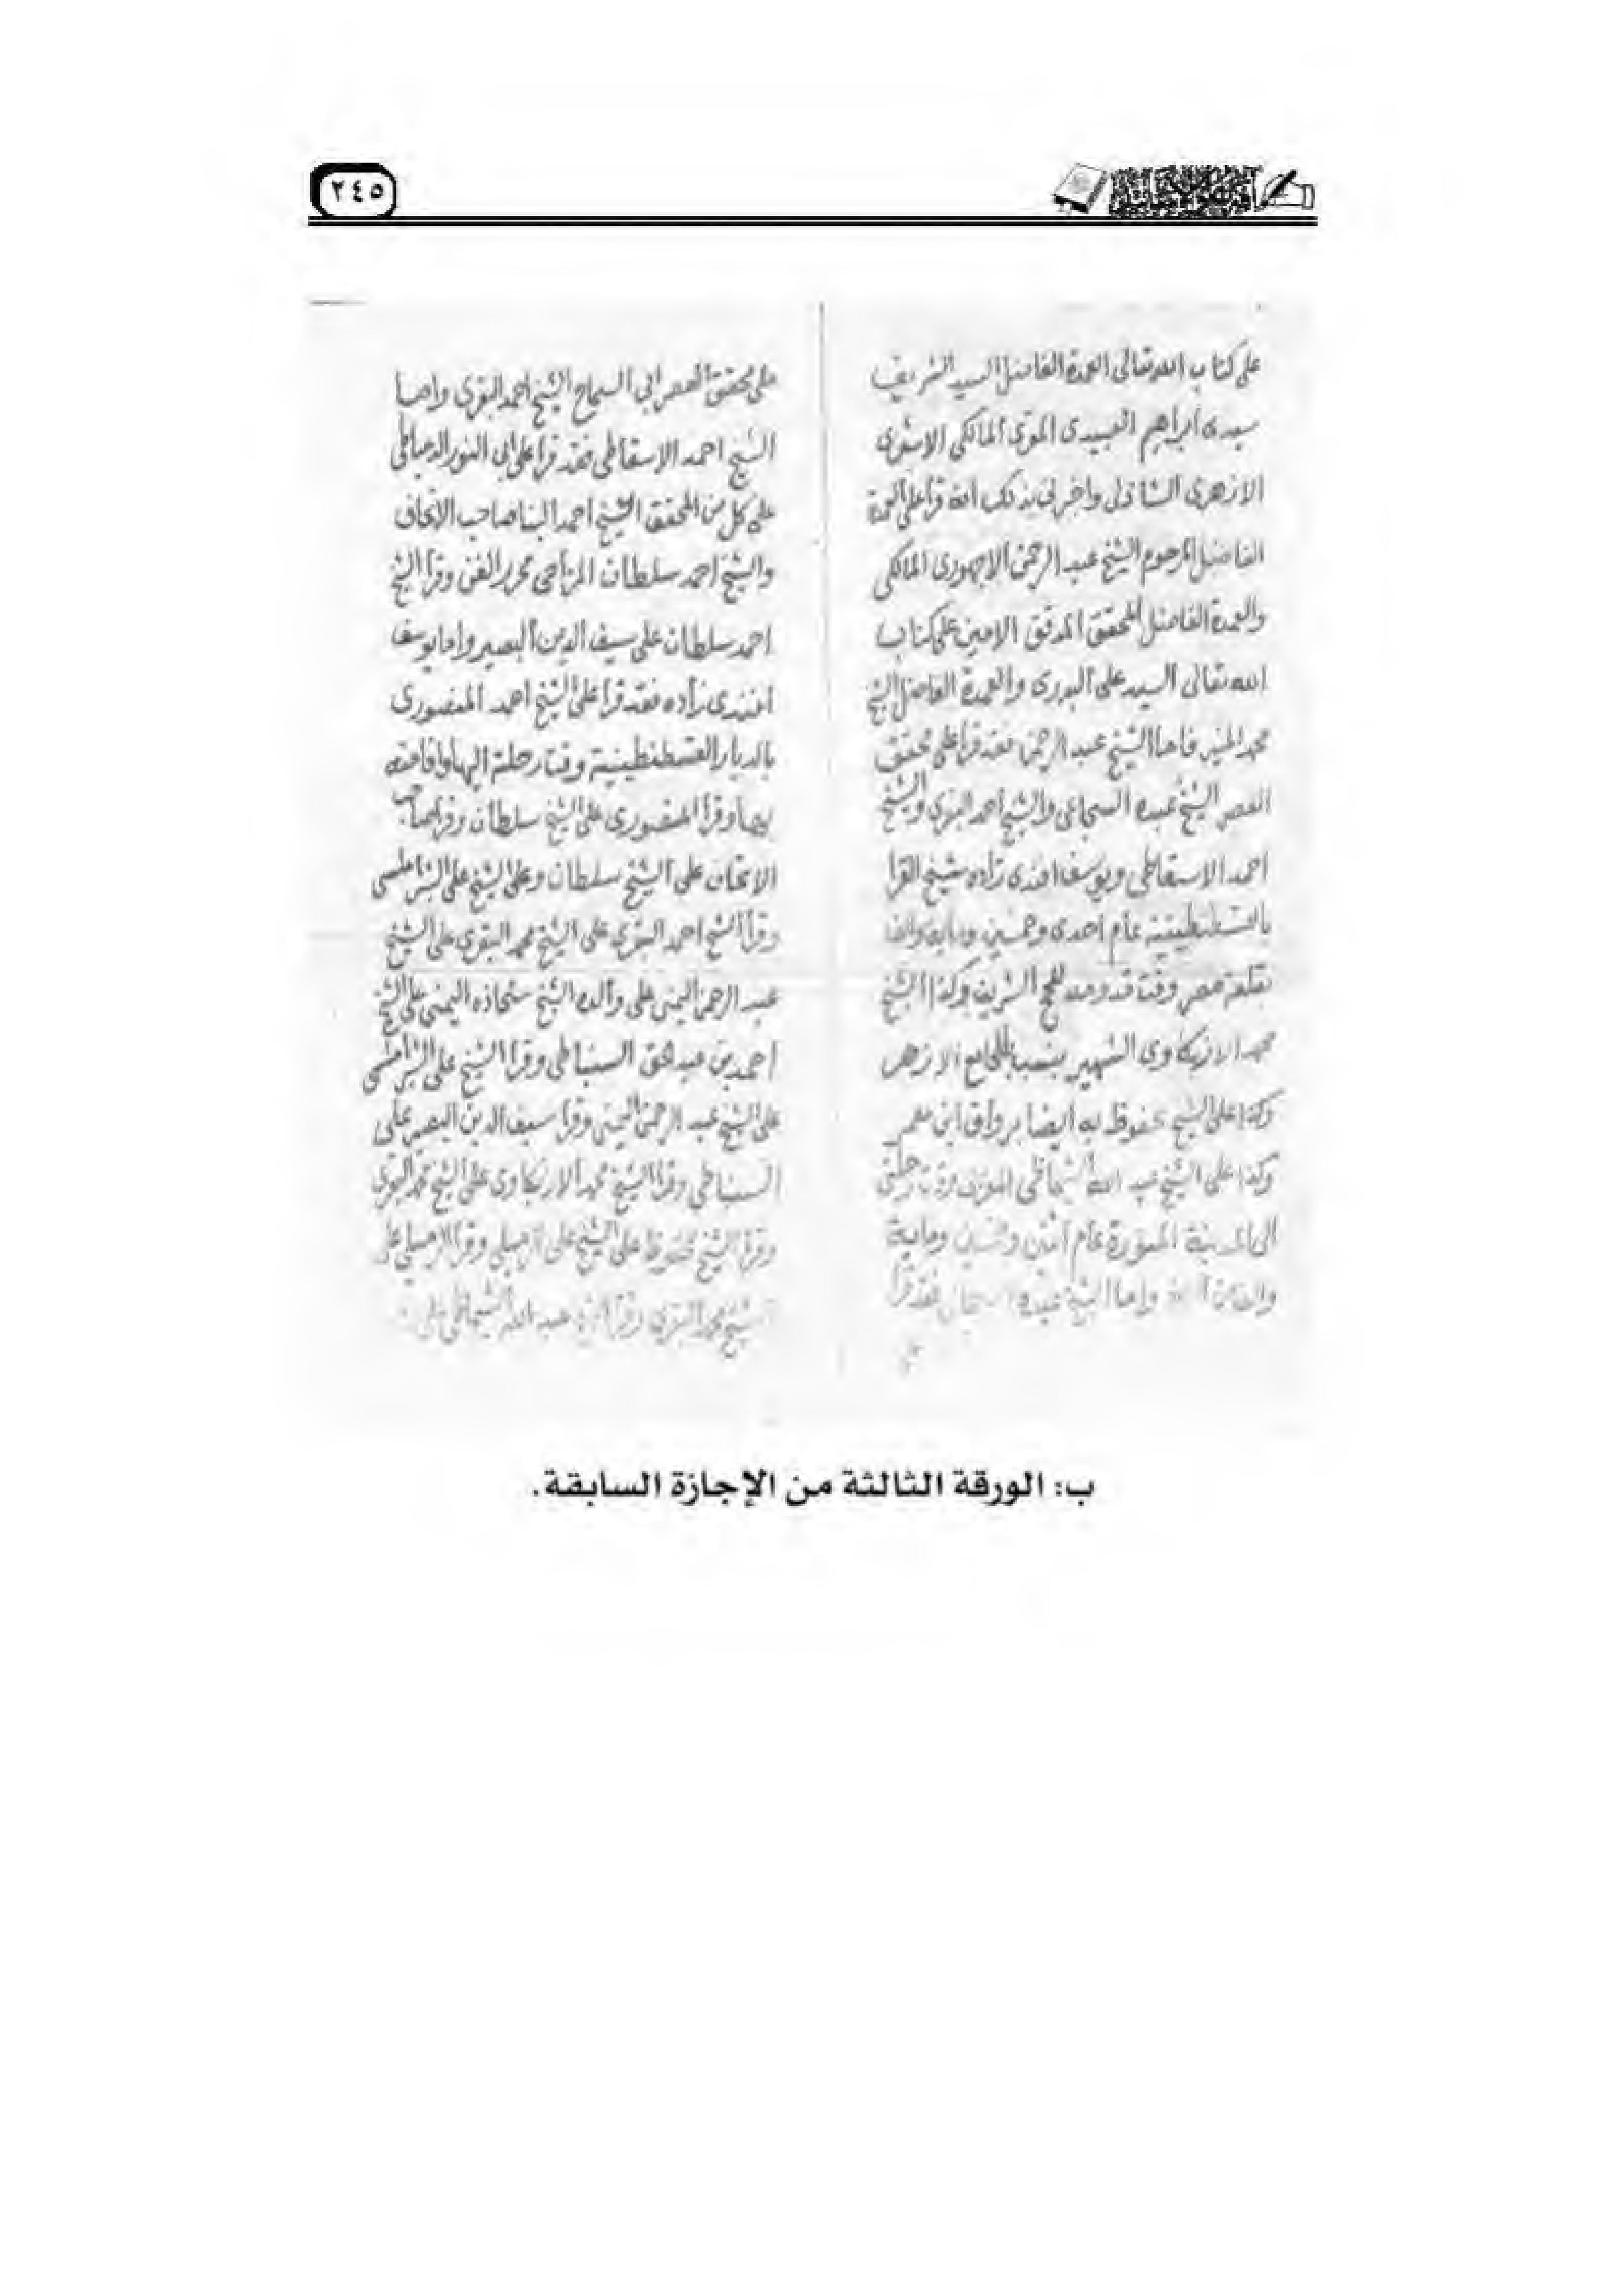 ٢٤٥
على كتاب الله تعالى العمدة الفاضل السيد الشريف
سيدى ابراهيم العبيدى المقرى المالكى الاشعرى
الازهرى الشاذلى واخبرنى بذلك انه قرا على العمدة
الفاضل المرحوم الشيخ عبد الرحمن الاجهورى المالكى
والعمدة الفاضل المحقق المدقق الامين على كتاب
الله تعالى السيد على البدرى والعمدة الفاضل الشيخ
محمد المنير فاما الشيخ عبد الرحمن فقد قرا على محقق
العصر الشيخ عبده السجاعى والشيخ احمد البقرى والشيخ
احمد الاسقاطى ويوسف افندى زاده شيخ القرا
بالقسطنطينية عام احدى وخمسين وماية والف
بقلعة مصر وقت قدومه للحج الشريف وكذا الشيخ
محمد الازبكاوى الشهير بالجامع الازهر
وكذا على الشيخ محفوظ به ايضا برواق ابن معمر
وكذا على الشيخ عبد الله الشماطى المغربى وقت رحلتى
الى المدينة المنورة عام اثنين وخمسين وماية
والف واما الشيخ عبده السجاعى فقد قرا
على محقق العصر ابى السماح الشيخ احمد البقرى واما
الشيخ احمد الاسقاطى فقد قرا على ابى النور الدمياطى
على كل من المحقق الشيخ احمد البنا صاحب الاتحاف
والشيخ احمد سلطان المزاحى محرر الفن وقرا الشيخ
احمد سلطان على سيف الدين البصير واما يوسف
افندى زاده فقد قرا على الشيخ احمد المنصورى
بالديار القسطنطينية وقت رحلته اليها واقامته
بها وقرا المنصورى على الشيخ سلطان وقرا صاحب
الاتحاف على الشيخ سلطان وعلى الشيخ على الشبراملسى
وقرا الشيخ احمد البقرى على الشيخ محمد البقرى على الشيخ
عبد الرحمن اليمنى على والده الشيخ شحاذه اليمنى على الشيخ
احمد بن عبد الحق السنباطى وقرا الشيخ على الشبراملسى
على الشيخ عبد الرحمن اليمنى وقرا سيف الدين البصير على
السنباطى وقرا الشيخ محمد الازبكاوى على الشيخ محمد البقرى
وقرا الشيخ محفوظ على الشيخ على الرميلى وقرا الرميلى على
الشيخ محمد البقرى وقرا الشيخ عبد الله الشماطى على
ب: الورقة الثالثة من الإجازة السابقة.